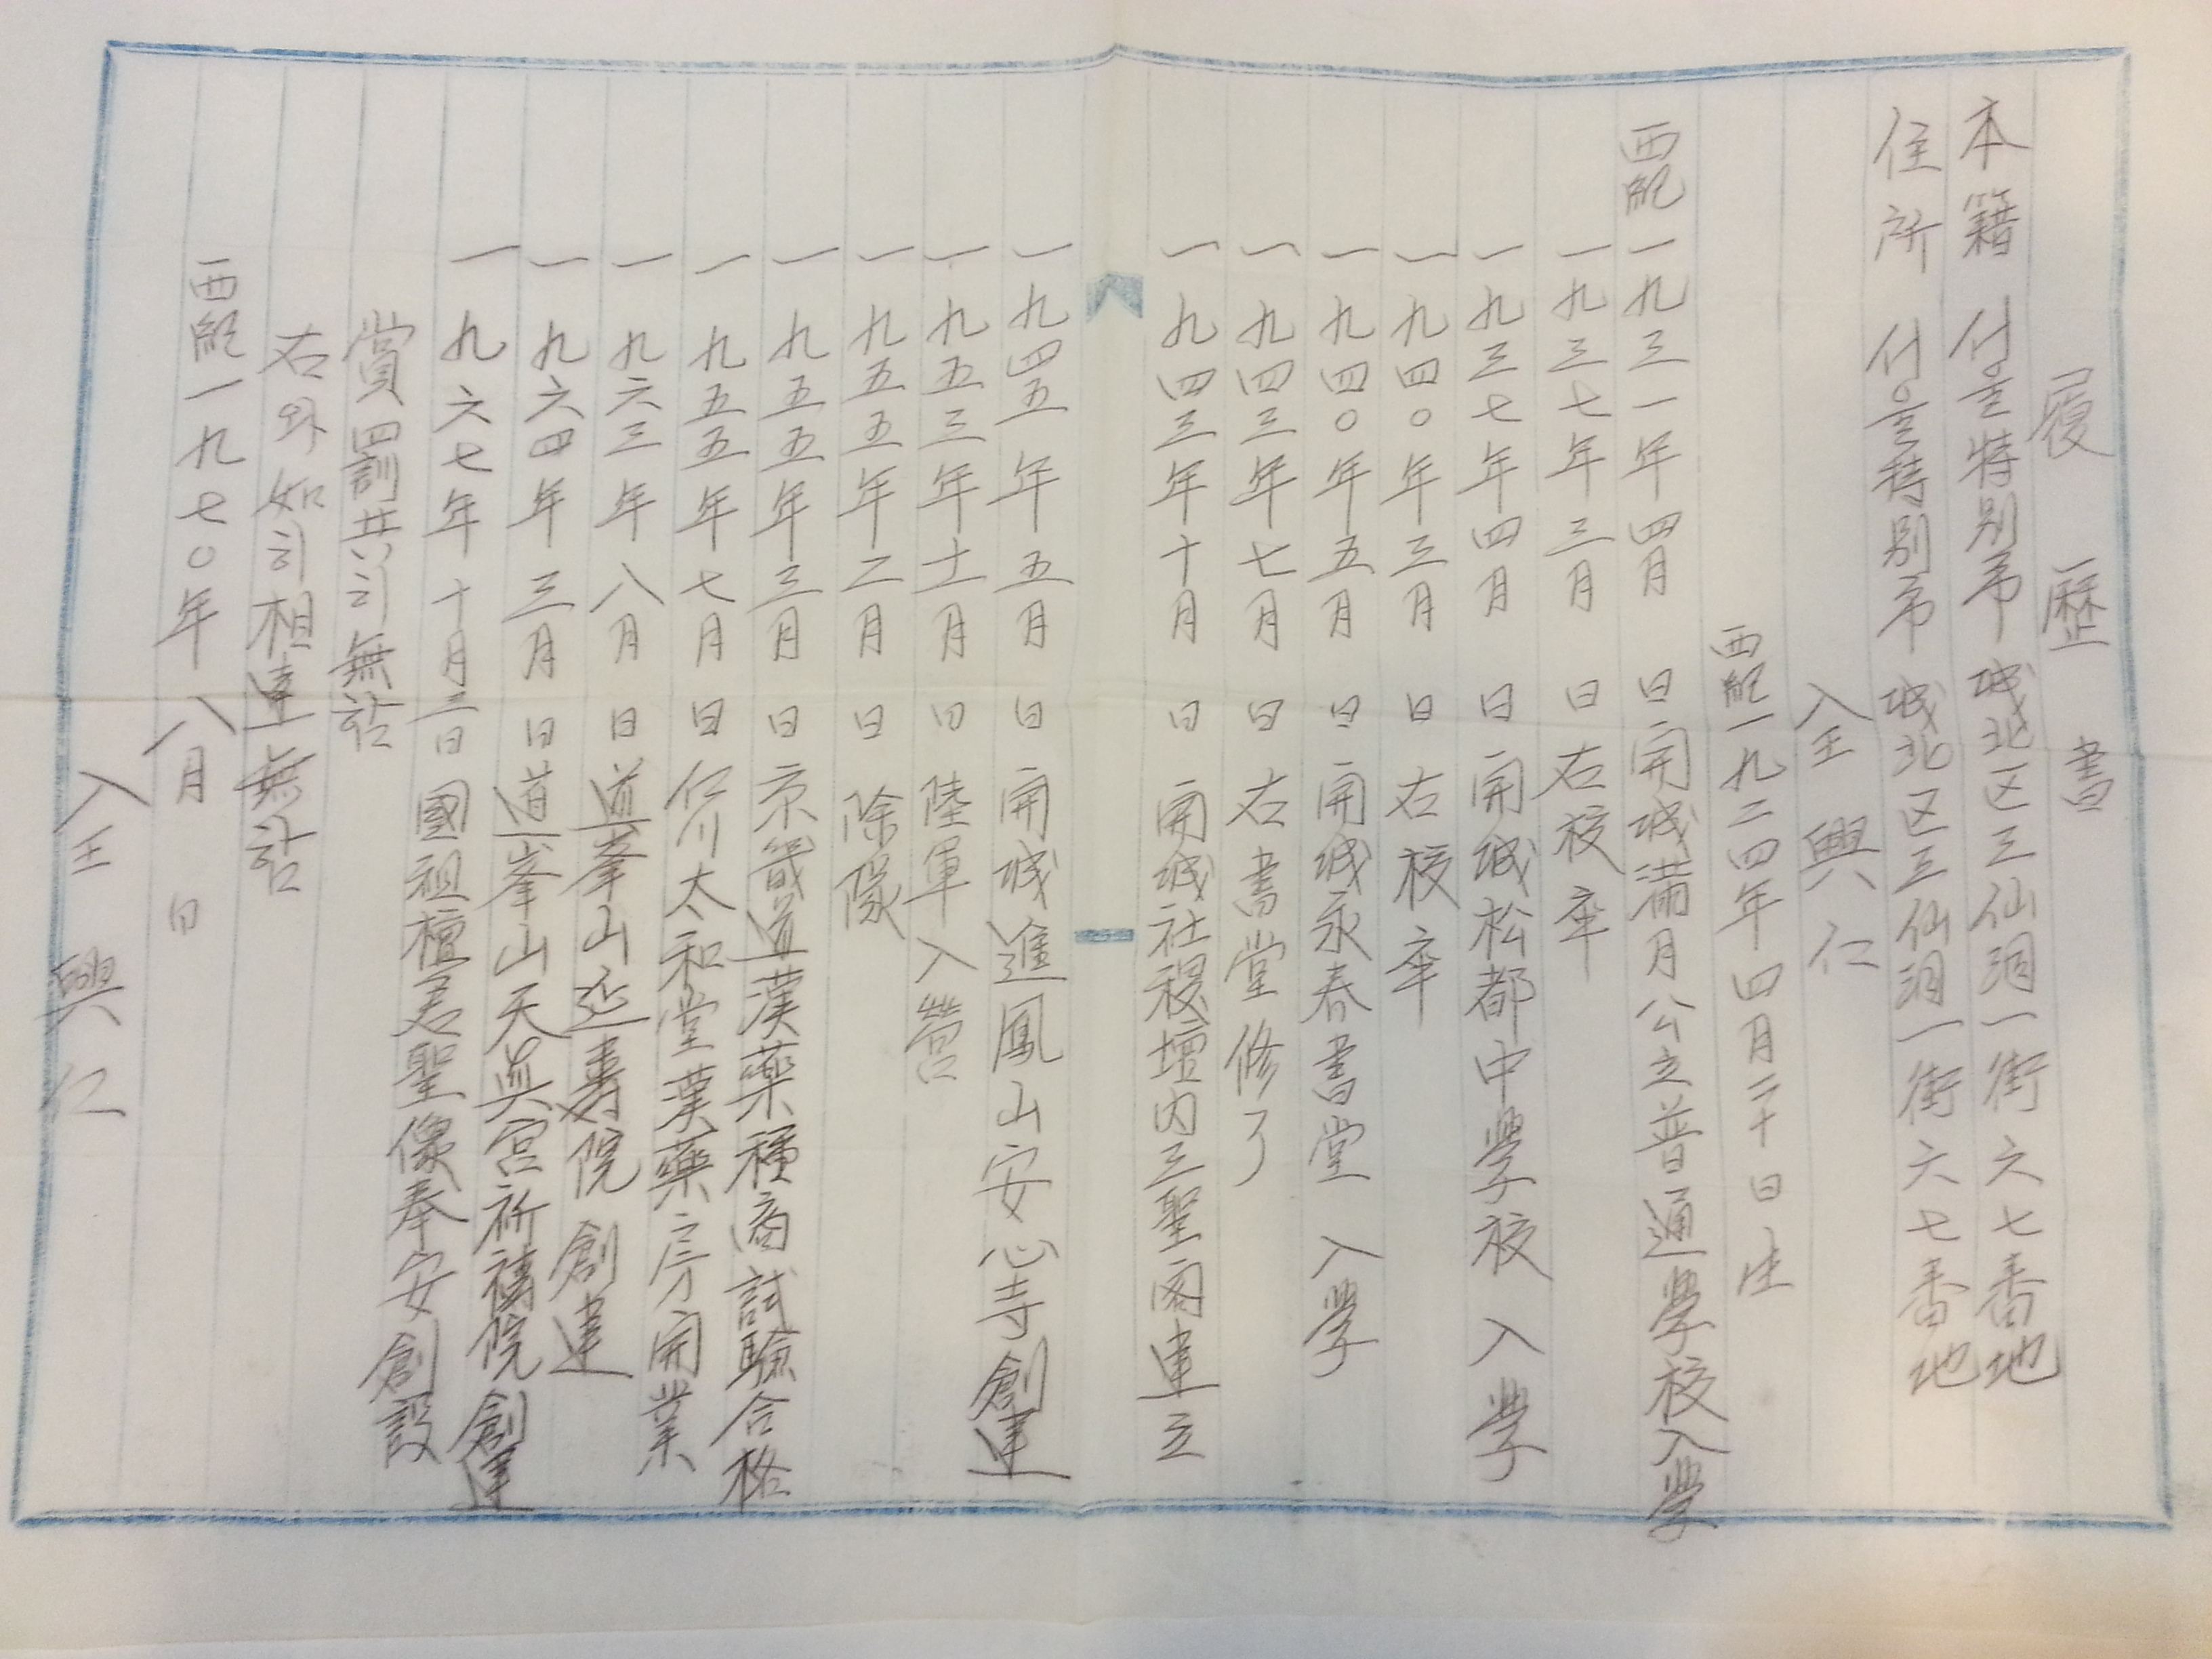 履歷書
本籍 서울特別市 城北区 三仙洞 一街 六七番地
住所 서울特別市 城北区 三仙洞 一街 六七番地
全興仁
西紀一九二四年四月二十日生
西紀一九三一年四月 日 開城満月公立普通學校入學
一九三七年三月 日 右校卒
一九三七年四月 日 開城松都中學校入學
一九四〇年三月 日 右校卒
一九四〇年五月 日 開城永春書堂入學
一九四三年七月 日 右書堂修了
一九四三年十月 日 開城社稷壇内三聖閣建立
一九四五年五月 日 開城進鳳山安心寺創建
一九五三年十一月 日 陸軍入營
一九五五年二月 日 除隊
一九五五年三月 日 京畿道漢藥種商試驗合格
一九五五年七月 日 仁川太和堂漢藥房開業
一九六三年八月 日 道峯山延壽院創建
一九六四年三月 日 道峯山天眞宮祈禱院創建
一九六七年十月三日 國祖檀君聖像奉安創設
賞罰共히無함
右와如히相違無함
西紀一九七〇年八月 日
全興仁